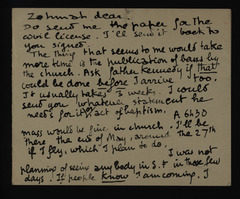 Zohmah dear,
Do send me the paper for the
civil license. I'll send it back to
you signed.
The thing that seems to me would take
more time is the publication of banns by
the church. Ask Father Kennedy if that
could be done before I arrive too.
It usually takes 3 week. I could
send you whatever statement he
needs for it, or act of baptism. A 6h30
mass would be fine in church. I'll be
there the end of May, around the 27th
if I fly, which I plan to do.
I was not
planning of seeing anybody in S.F. in those few
days. If people know I am coming, I